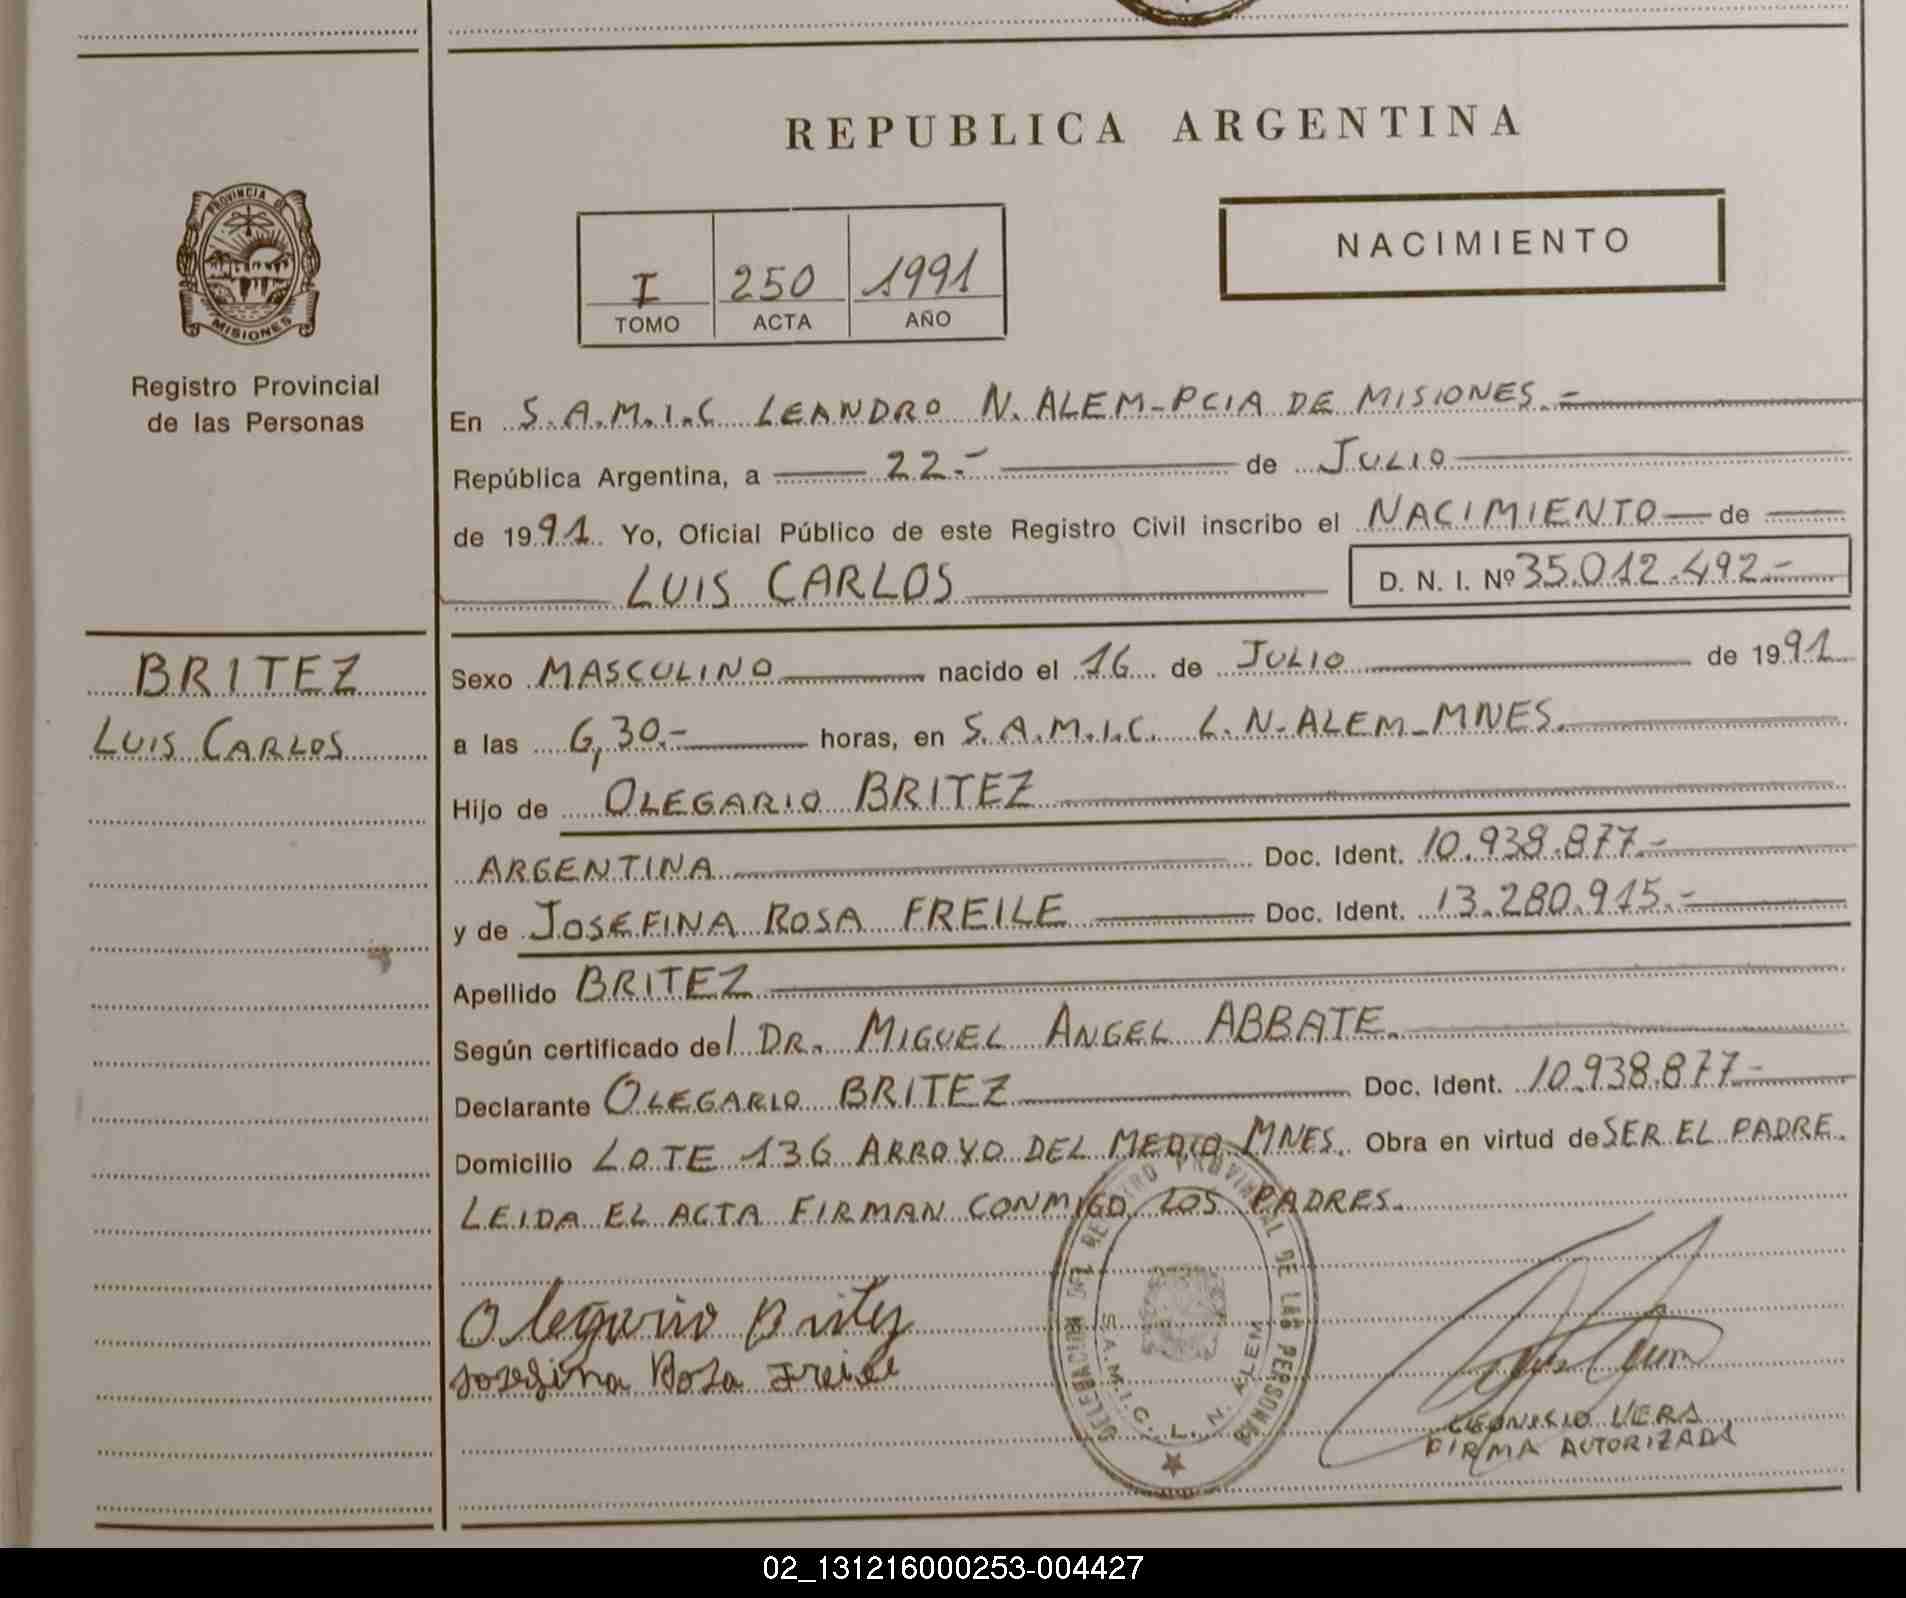 REPUBLICA ARGENTINA
PROVINCIA DE
MISIONES
Registro Provincial
de las Personas
I 250 1991
TOMO ACTA AÑO
NACIMIENTO
En S.A.M.I.C LEANDRO N. ALEM-PCIA DE MISIONES.-
República Argentina, a 22.- de JULIO
de 1991. Yo, Oficial Público de este Registro Civil inscribo el NACIMIENTO de
LUIS CARLOS D. N. I. Nº 35.012.492.-
BRITEZ
LUIS CARLOS
Sexo MASCULINO nacido el 16 de JULIO de 1991
a las 6,30.- horas, en S.A.M.I.C. L.N-ALEM-MNES.
Hijo de OLEGARIO BRITEZ
ARGENTINA Doc. Ident. 10.938.877.-
y de JOSEFINA ROSA FREILE Doc. Ident. 13.280.915.-
Apellido BRITEZ
Según certificado del DR. MIGUEL ANGEL ABBATE.
Declarante OLEGARIO BRITEZ Doc. Ident. 10.938.877-
Domicilio LOTE 136 ARROYO DEL MEDIO MNES. Obra en virtud de SER EL PADRE.
LEIDA EL ACTA FIRMAN CONMIGO LOS PADRES.
Olegario Britez
Josefina Rosa Freile
DELEGACION DEL REGISTRO PROVINCIAL DE LAS PERSONAS
S.A.M.I.C. L. N. ALEM
LEONICIO VERA
FIRMA AUTORIZADA
02_131216000253-004427